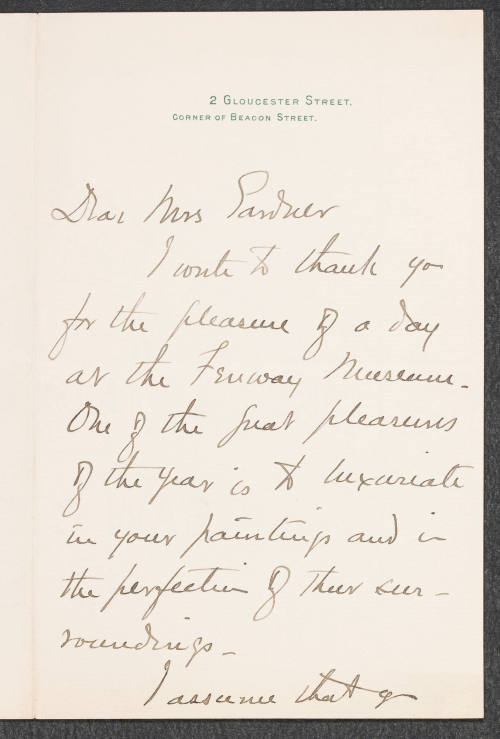 2 Gloucester Street.
Corner of Beacon Street.
Dear Mrs Gardner
I write to thank yo
for the pleasure of a day
at the Fenway Museum.
One of the great pleasures
of the year is to luxuriate
in your paintings and in
the perfection of their sur-
roundings.
I assume that yo